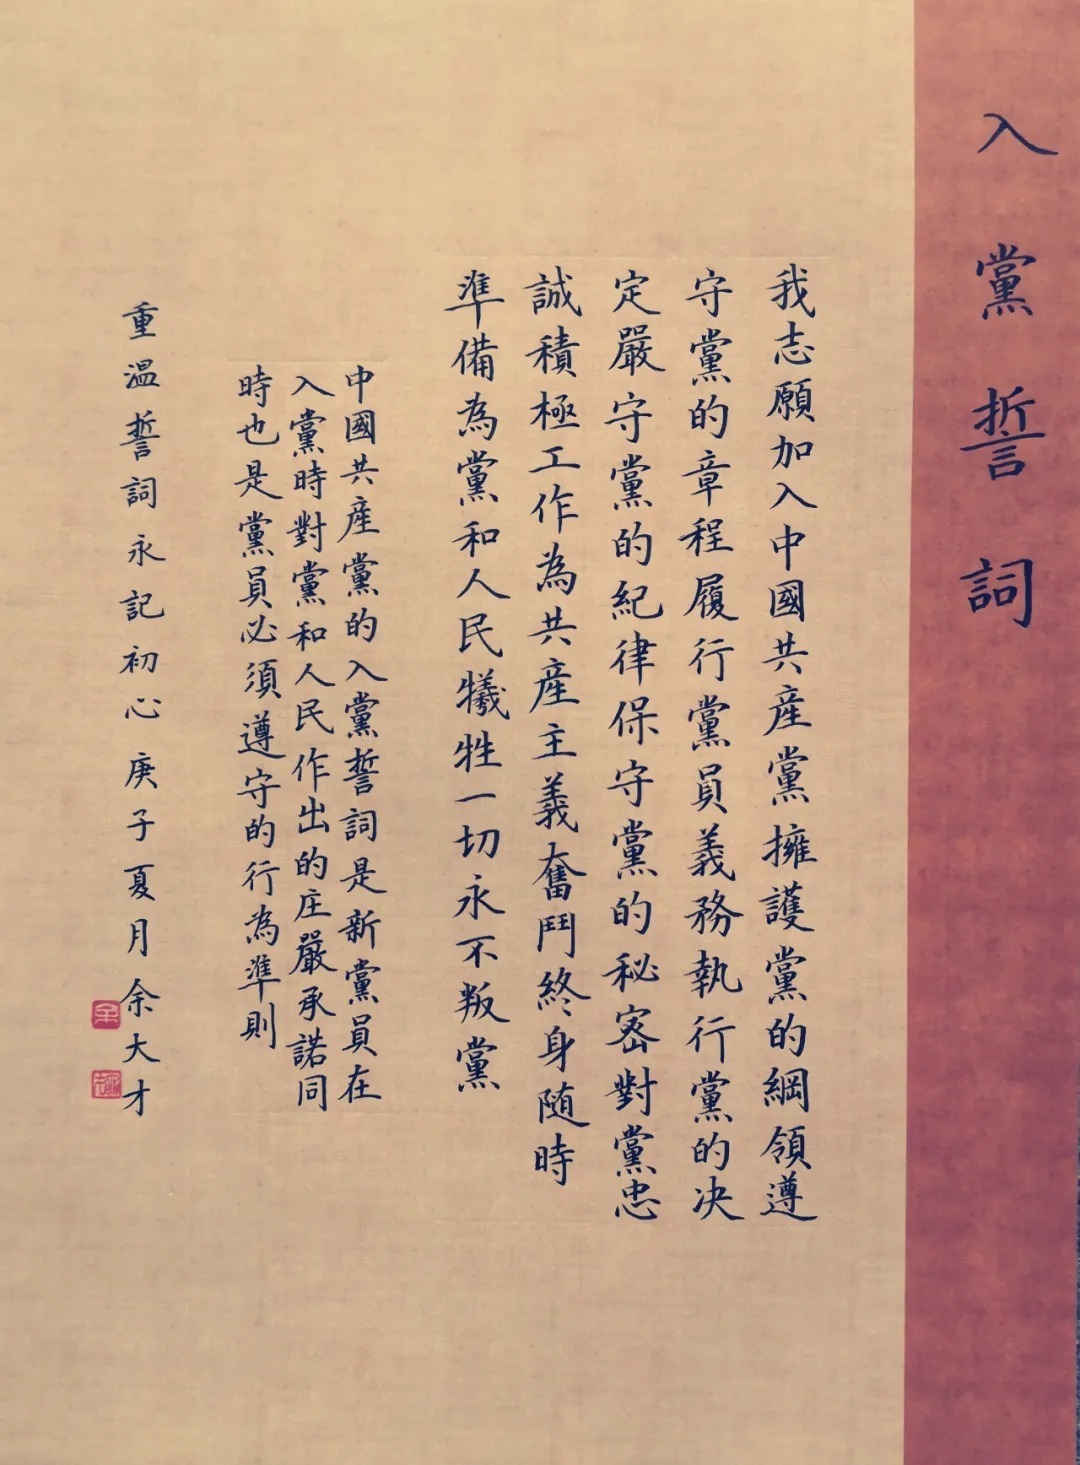 入黨誓詞
我志願加入中國共産黨擁護黨的綱領遵
守黨的章程履行黨員義務執行黨的决
定嚴守黨的紀律保守黨的秘密對黨忠
誠積極工作為共産主義奮鬥終身随時
準備為黨和人民犧牲一切永不叛黨
中國共産黨的入黨誓詞是新黨員在
入黨時對黨和人民作出的庄嚴承諾同
時也是黨員必須遵守的行為準則
重溫誓詞永記初心庚子夏月余大才